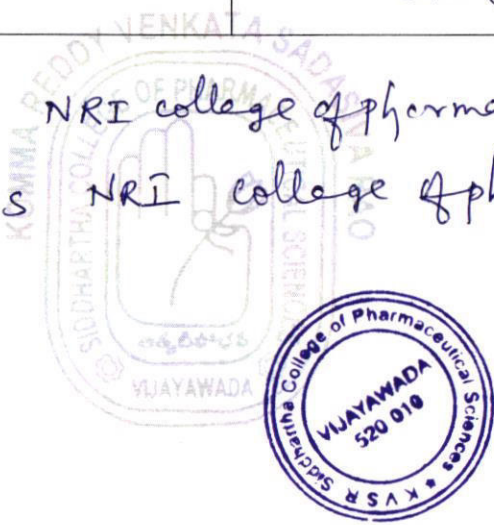 KOMMA REDDY VENKATA SADASIVA RAO
SIDDHARTHA COLLEGE OF PHARMACEUTICAL SCIENCES
NRI college of pharma
s NRI college of ph
VIJAYAWADA
Siddhartha College of Pharmaceutical Sciences * K V S R
VIJAYAWADA
520 010